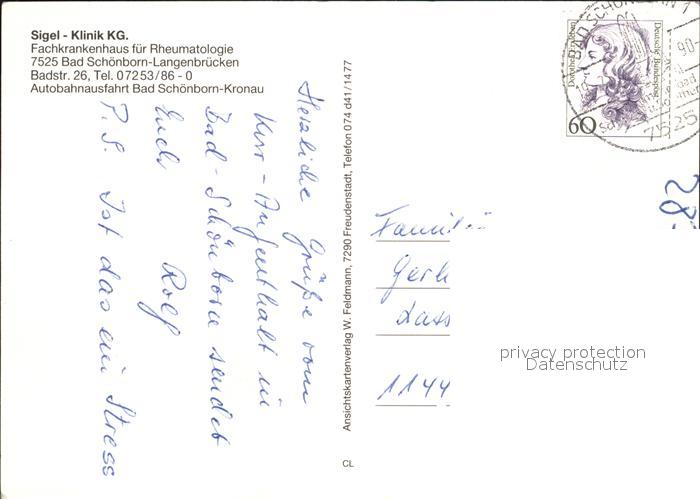 Sigel - Klinik KG.
Fachkrankenhaus für Rheumatologie
7525 Bad Schönborn-Langenbrücken
Badstr. 26, Tel. 07253/86 - 0
Autobahnausfahrt Bad Schönborn-Kronau
Herzliche Grüße vom
Kur-Aufenthalt in
Bad-Schönborn sendet
Euch Rolf
P.S. Ist das ein Stress
Ansichtskartenverlag W. Feldmann, 7290 Freudenstadt, Telefon 074 d41/14 77
CL
BAD SCHÖNBORN 1
90-
7525
Dorothea Erxleben
Deutsche Bundespost
60
82
Famili
Gerh
Lass
1144
privacy protection
Datenschutz